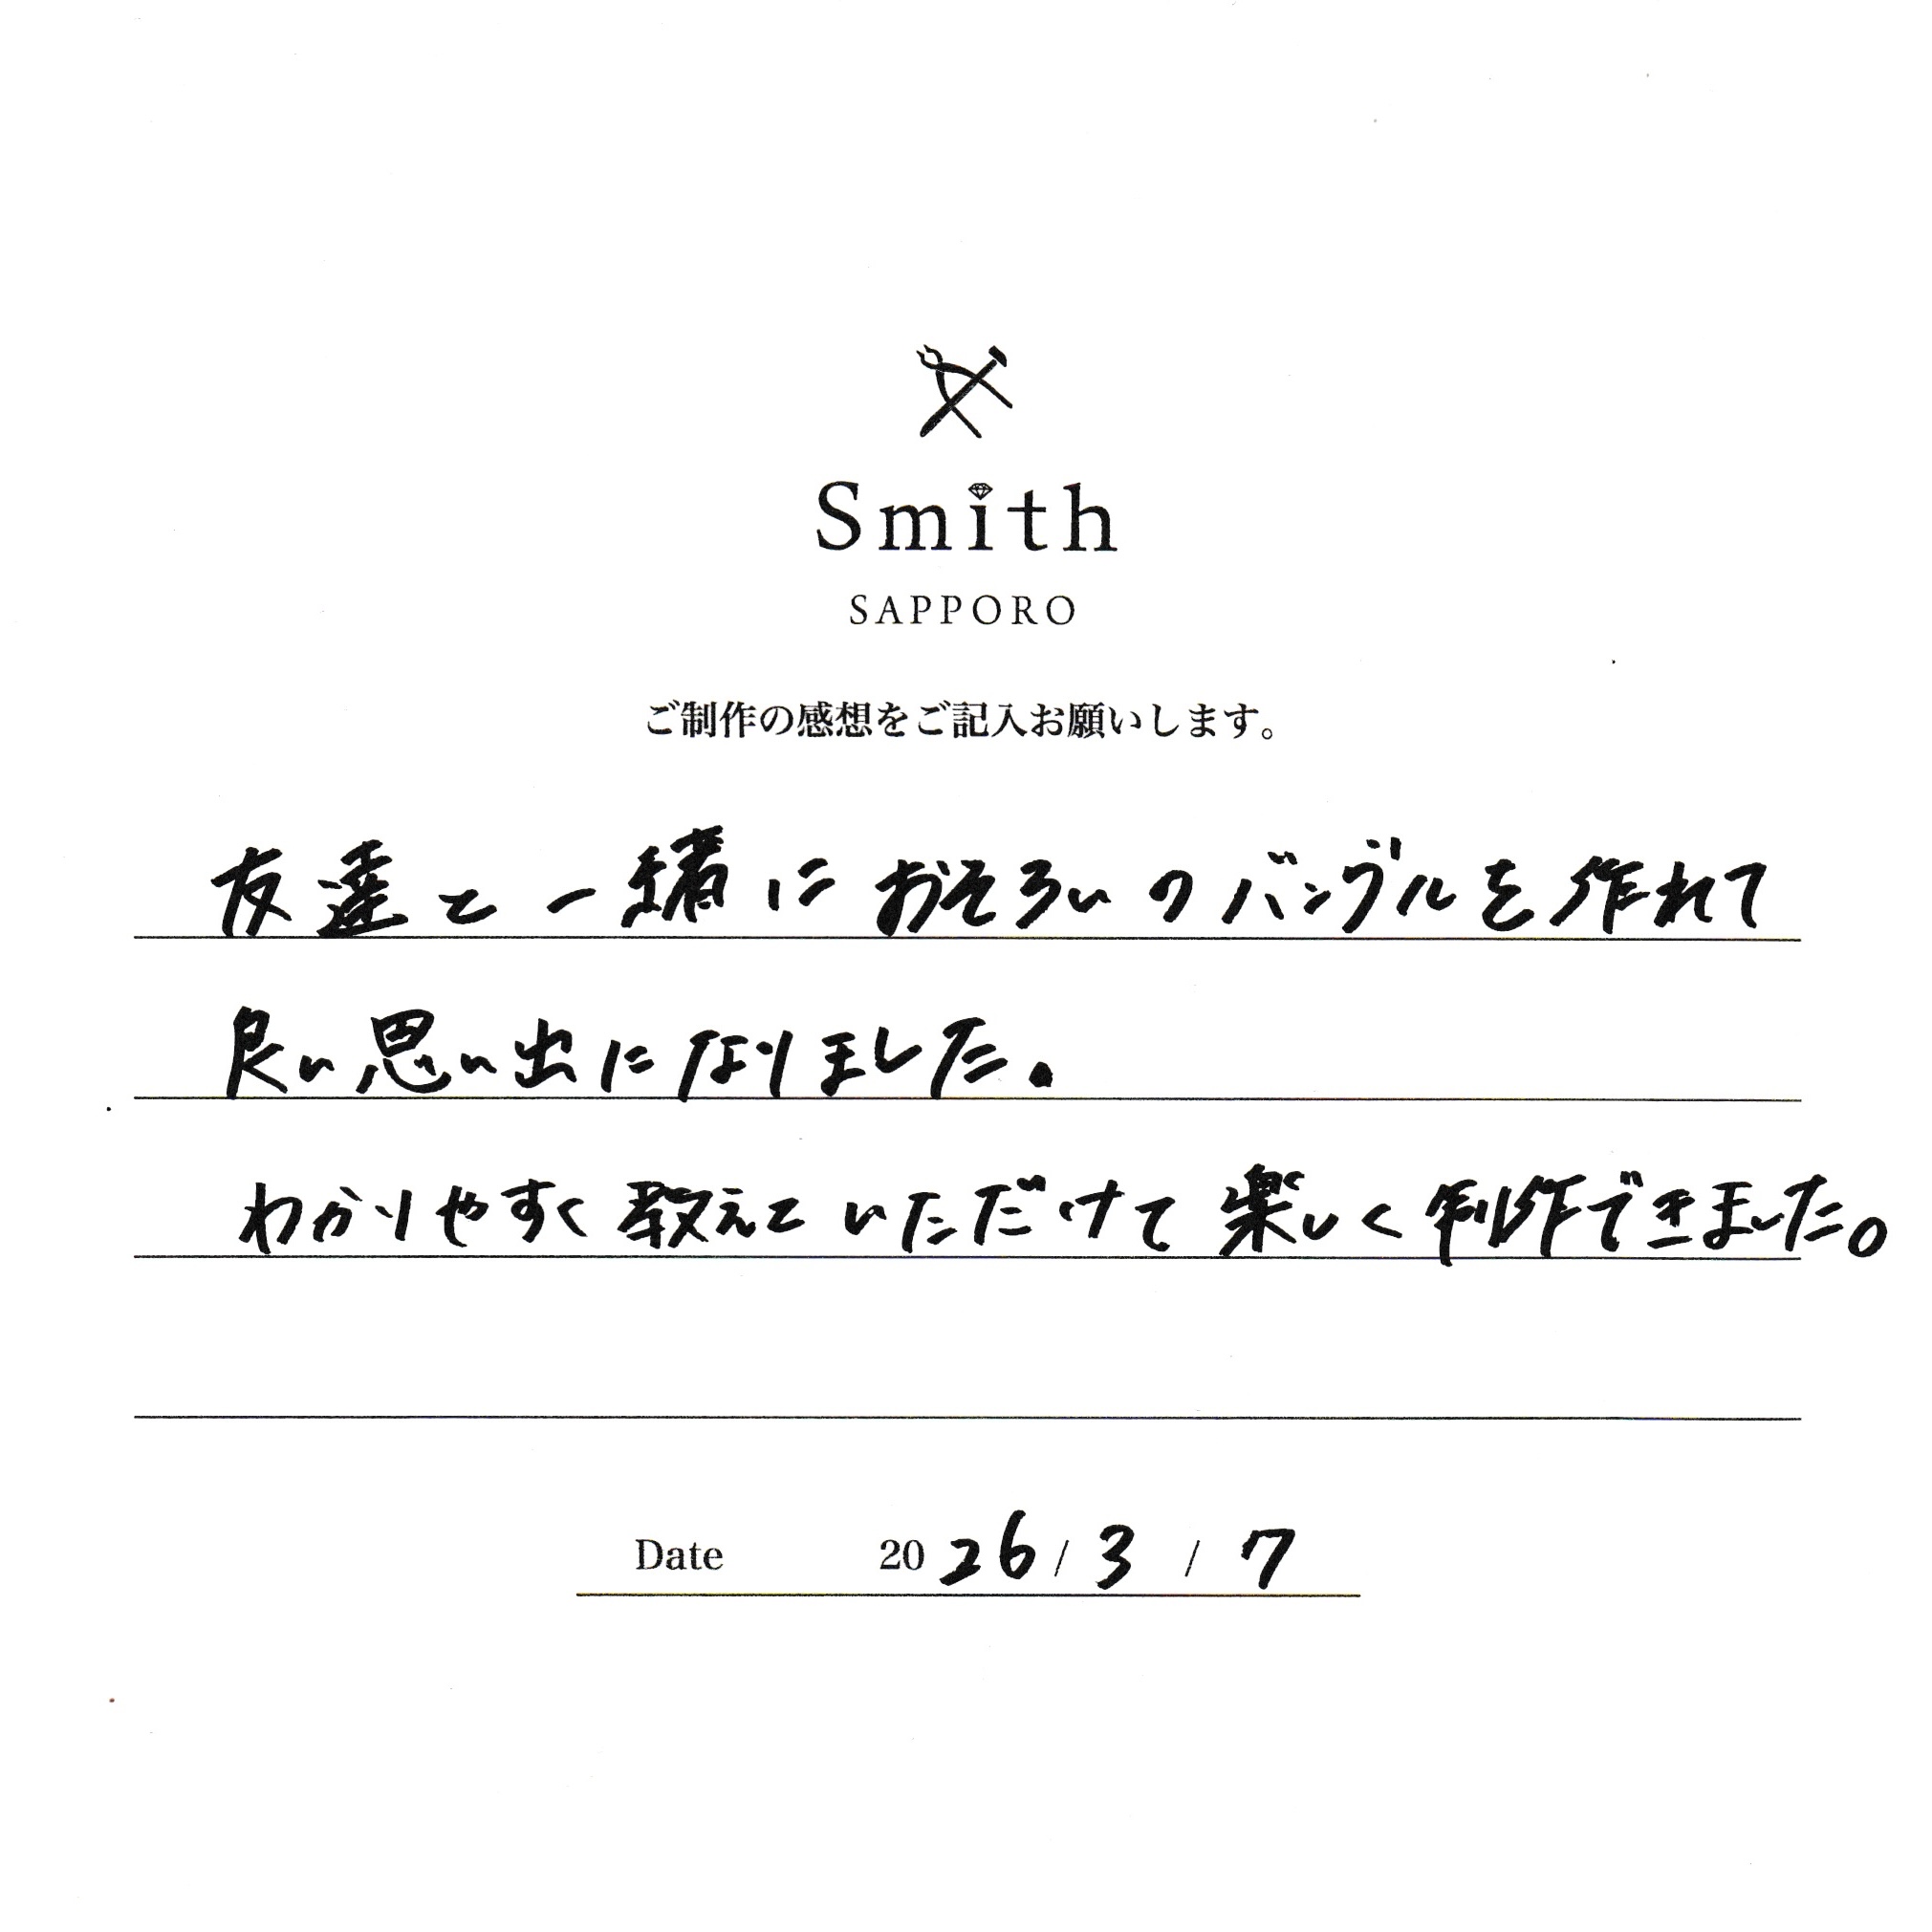 Smith
SAPPORO
ご制作の感想をご記入お願いします。
友達と一緒におそろいのバングルを作れて
良い思い出になりました。
わかりやすく教えていただけて楽しく制作できました。
Date 2026/3/7